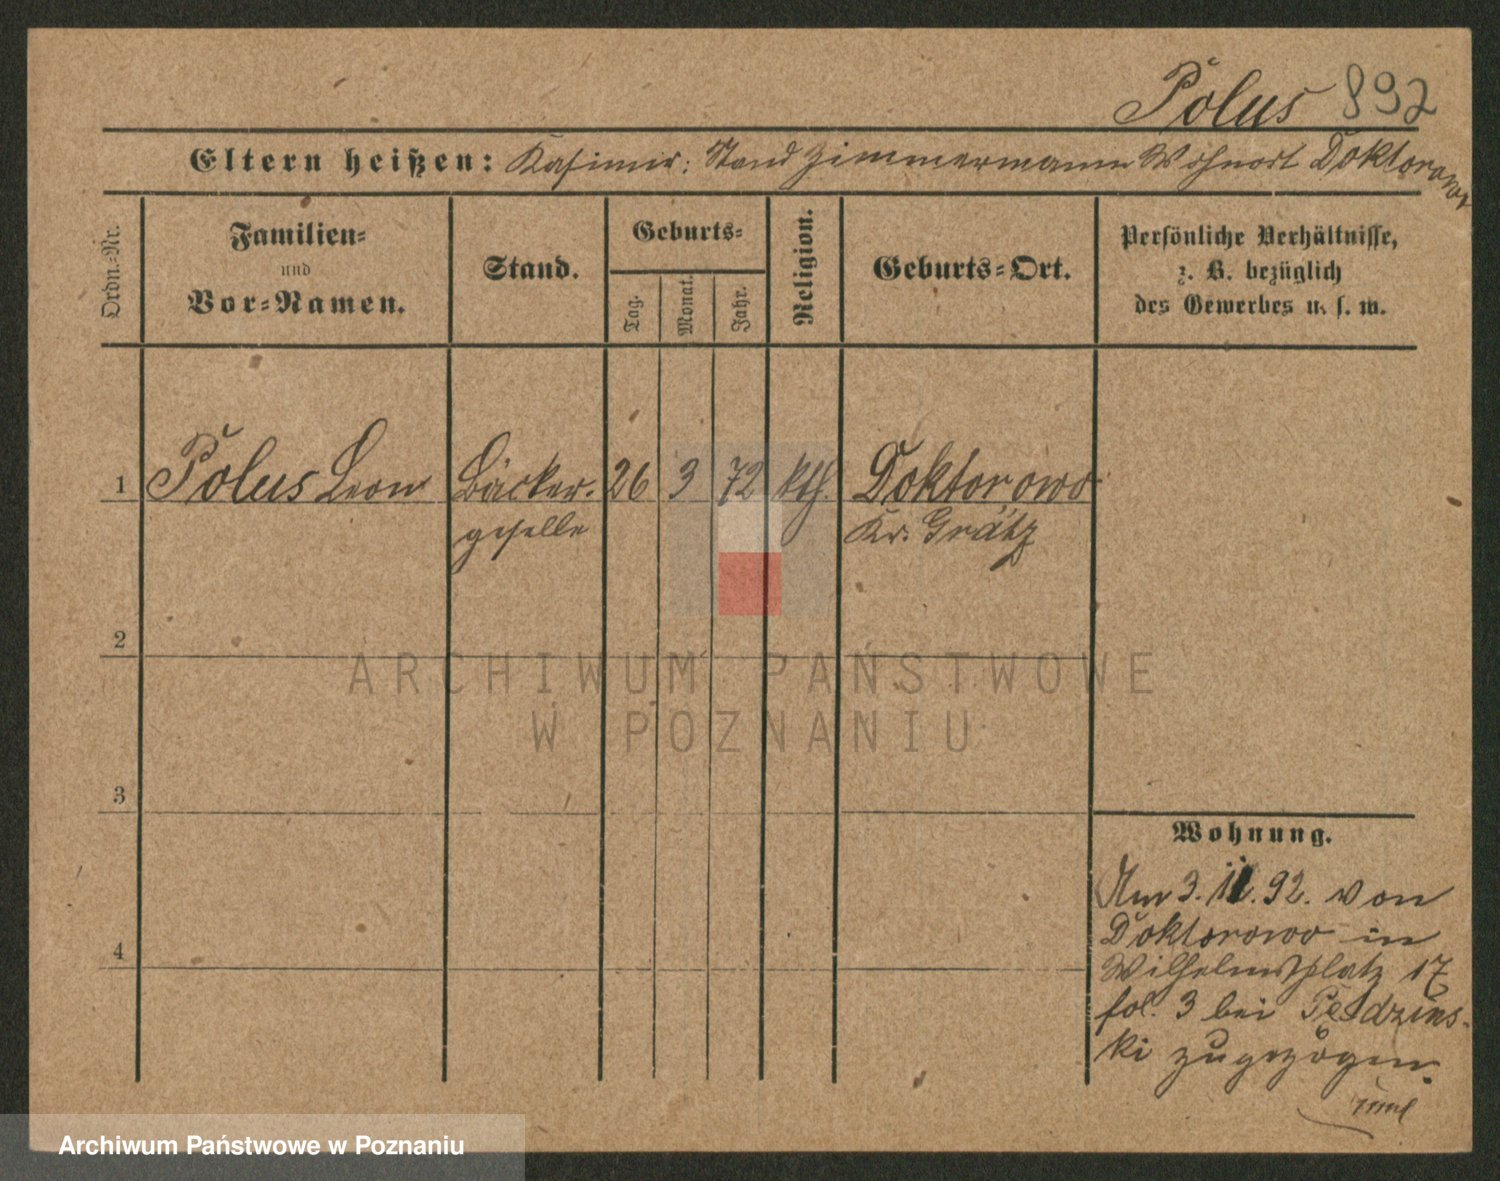 Polus 892
Eltern heißen: Kasimir: Stand Zimmermann Wohnort Doktorowo
Ordn.-Nr.
Familien-
und
Vor-Namen.
Stand.
Geburts-
Tag.
Monat.
Jahr.
Religion.
Geburts-Ort.
Persönliche Verhältnisse,
z. B. bezüglich
des Gewerbes u. s. w.
1 Polus Leon Bäcker- 26 3 72 kth. Doktorowo
geselle Kr. Grätz
2
ARCHIWUM PAŃSTWOWE
W POZNANIU
3
Wohnung.
Am 3. 92. von
Doktorowo in
4
Wilhelmsplatz 17
fol. 3 bei
ki zugezogen.
Archiwum Państwowe w Poznaniu